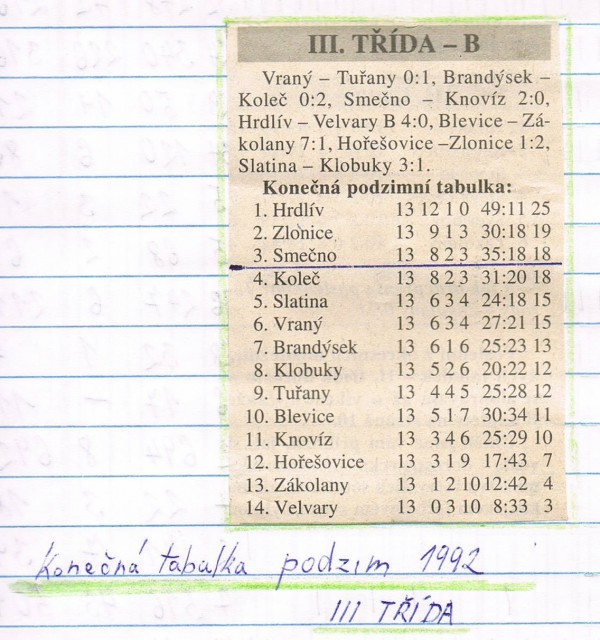 III. TŘÍDA – B
Vraný – Tuřany 0:1, Brandýsek –
Koleč 0:2, Smečno – Knovíz 2:0,
Hrdlív – Velvary B 4:0, Blevice – Zá-
kolany 7:1, Hořešovice –Zlonice 1:2,
Slatina – Klobuky 3:1.
Konečná podzimní tabulka:
1. Hrdlív 13 12 1 0 49:11 25
2. Zlonice 13 9 1 3 30:18 19
3. Smečno 13 8 2 3 35:18 18
4. Koleč 13 8 2 3 31:20 18
5. Slatina 13 6 3 4 24:18 15
6. Vraný 13 6 3 4 27:21 15
7. Brandýsek 13 6 1 6 25:23 13
8. Klobuky 13 5 2 6 20:22 12
9. Tuřany 13 4 4 5 25:28 12
10. Blevice 13 5 1 7 30:34 11
11. Knovíz 13 3 4 6 25:29 10
12. Hořešovice 13 3 1 9 17:43 7
13. Zákolany 13 1 2 10 12:42 4
14. Velvary 13 0 3 10 8:33 3
Konečná tabulka podzim 1992
III TŘÍDA